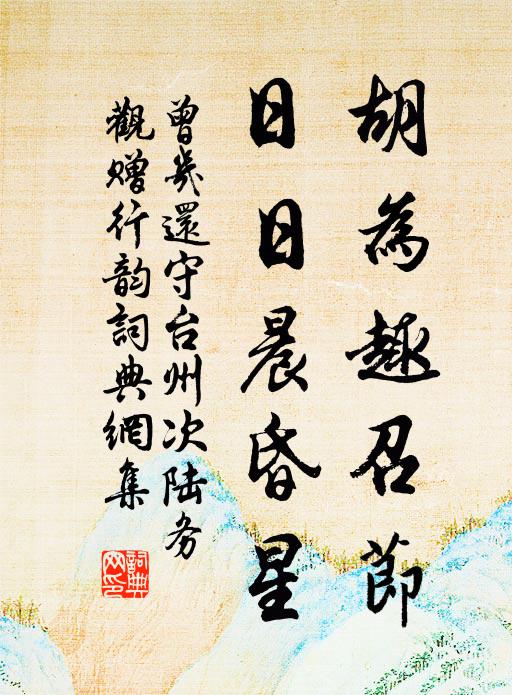 胡為趣召節
日日晨昏星
曾幾還守台州次陆务
觀贈行韵詞典網集
詞典网印